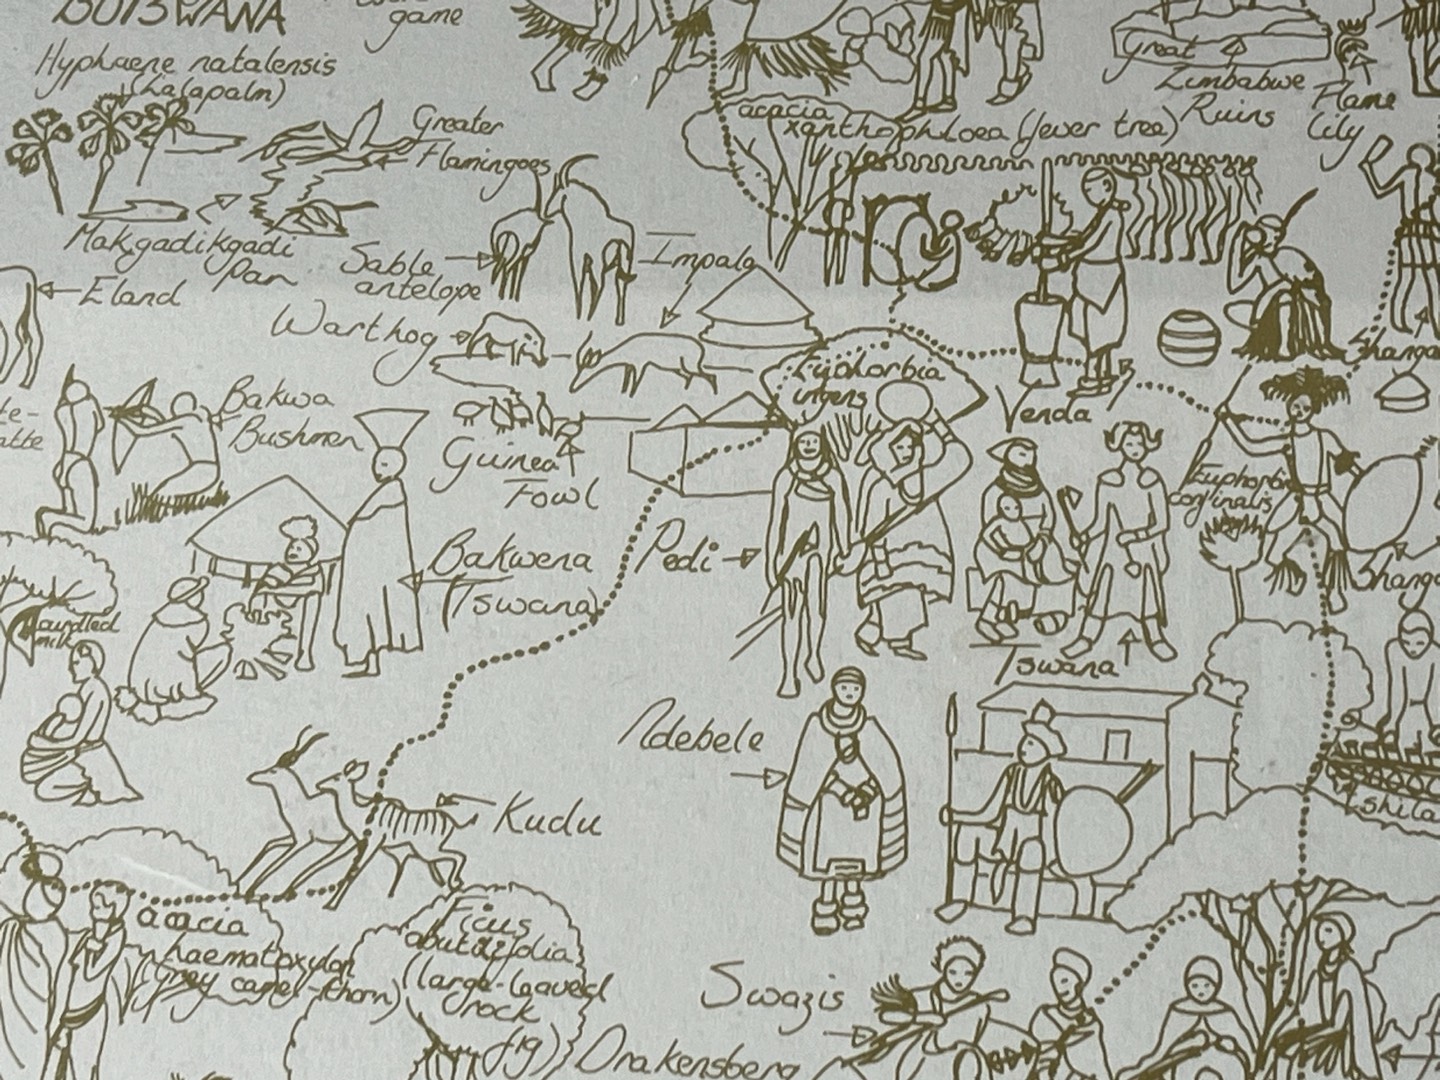 BOTSWANA
game
Hyphaene natalensis
(Lalapalm)
Greater
Flamingoes
Makgadikgadi
Pan
Eland
Sable
antelope
Impala
Warthog
Great
Zimbabwe
Ruins
Flame
Lily
acacia
xanthophloea (fever tree)
Euphorbia
ingens
Venda
Bakwa
Bushmen
Guinea
Fowl
Bakwena
(Tswana)
Pedi
Euphorbia
Tswana
Ndebele
Kudu
acacia
haematoxylon
(grey camel-thorn)
Ficus
abutilifolia
(large-leaved
rock
fig)
Swazis
Drakensberg